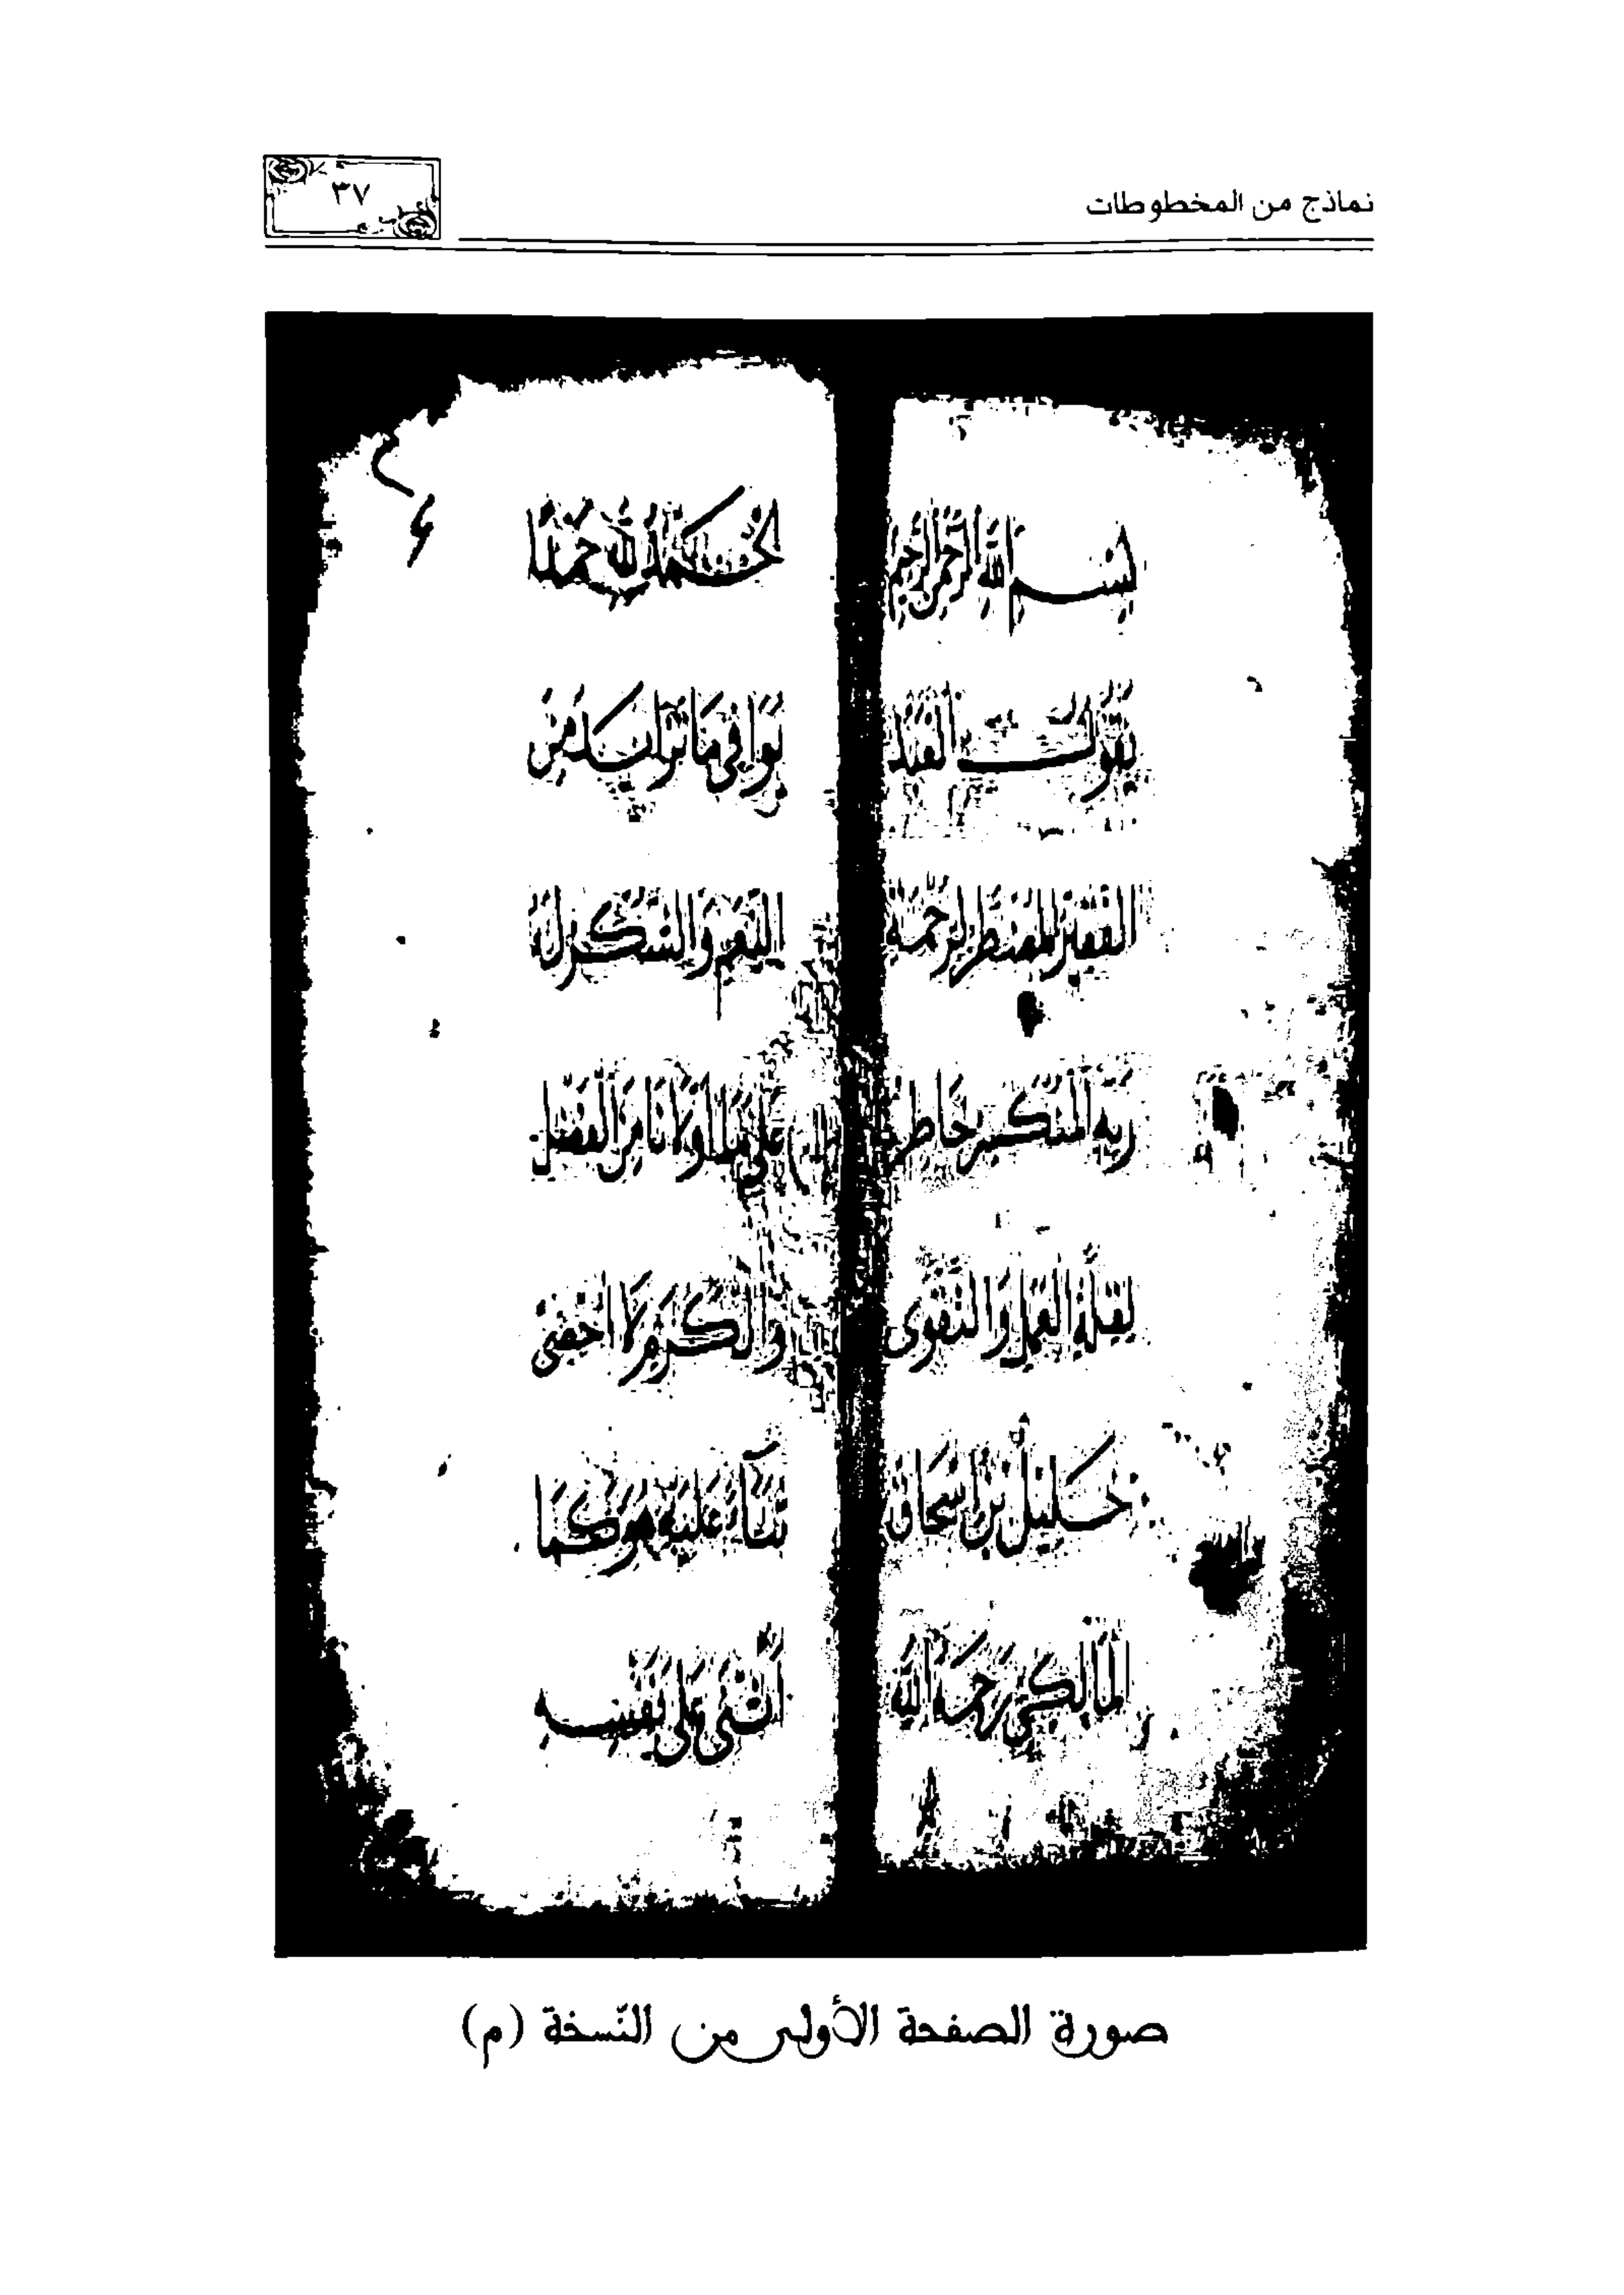 نماذج من المخطوطات
٣٧
بسم الله الرحمن الرحيم
يقول العبد
الفقير المضطر لرحمة
ربه المنكسر خاطره
لقلة العمل والتقوى
خليل بن اسحاق
المالكي رحمه الله
الحمد لله حمدا
يوافي ما تزايد من
النعم والشكر له
على ما اولانا من الفضل
والكرم لا احصي
ثناء عليه هو كما
اثنى على نفسه
صورة الصفحة الأولى من النّسخة (م)